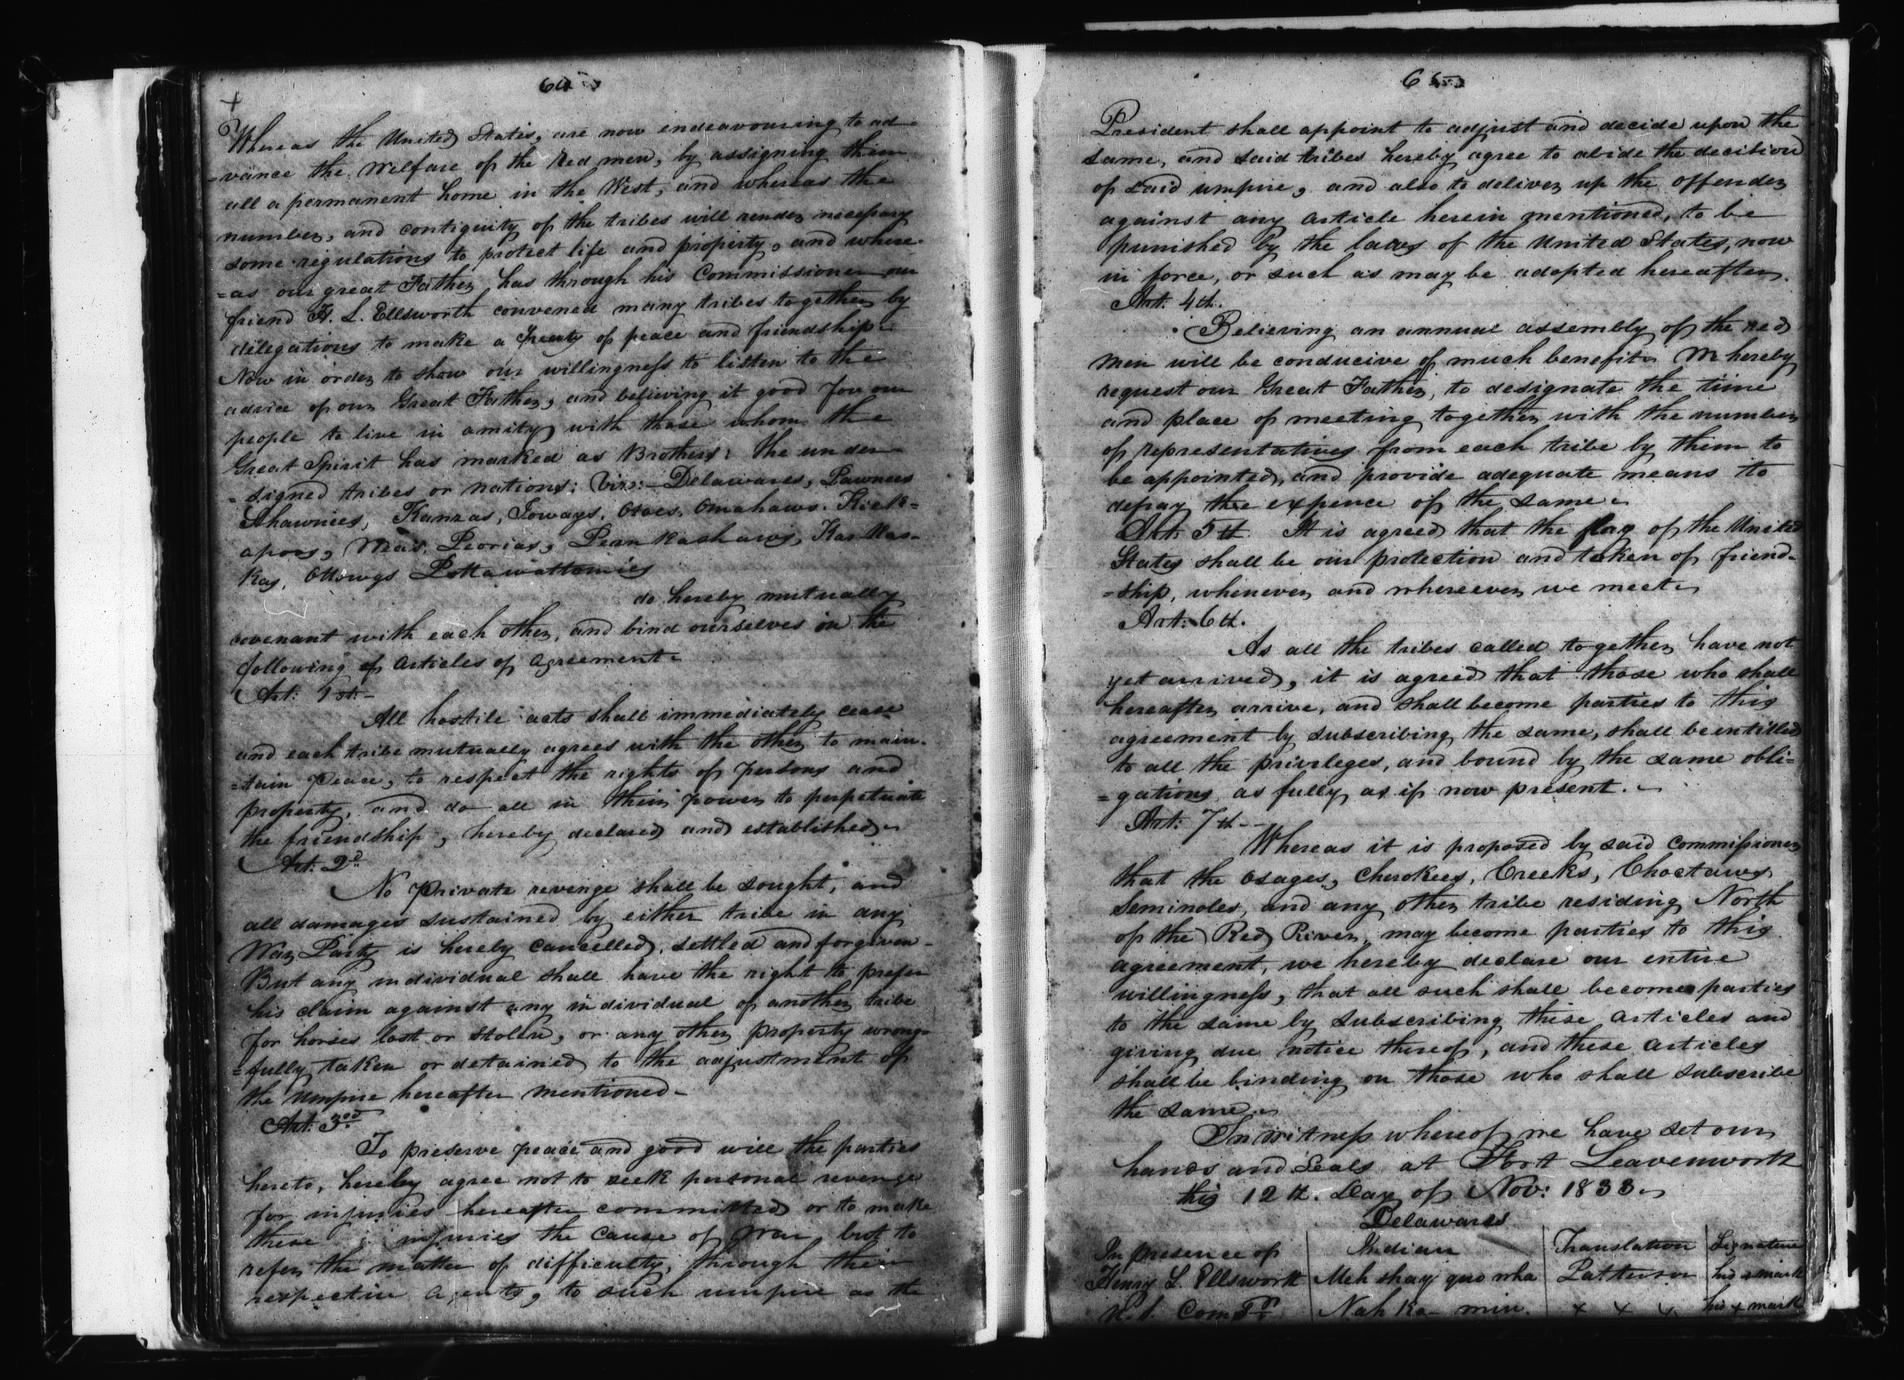 64
+
Whereas the United States, are now endeavouring to ad-
=vance the Welfare of the Red men, by assigning them
all a permanent home in the West, and whereas the
number, and contiguity of the tribes will render necessary
some regulations to protect life and property, and where-
=as our great Father has through his Commissioner our
friend H. L. Ellsworth convened many tribes together by
delegations to make a Treaty of peace and friendship -
Now in order to show our willingness to listen to the
advice of our Great Father, and believing it good for our
people to live in amity with those whom the
Great Spirit has marked as Brothers: the under-
=signed tribes or nations: Viz:- Delawares, Pawnees
Shawnies, Kanzas, Ioways, Otoes, Omahaws. Kick-
apoos, Weas, Peorias, Peankashaws, Kaskas-
kas, Ottowas Pottawattomies
do hereby mutually
covenant with each other, and bind ourselves in the
following of articles of agreement -
Art: 1st -
All hostile acts shall immediately cease
and each tribe mutually agrees with the other to main-
=tain peace, to respect the rights of persons and
property, and do all in their power to perpetuate
the friendship, hereby declared and established -
Art: 2d
No private revenge shall be sought, and
all damages sustained by either tribe in any
War Party is hereby cancelled, settled and forgiven -
But any individual shall have the right to prefer
his claim against any individual of another tribe
for horses lost or stolen, or any other property wrong-
=fully taken or detained to the adjustment of
the Umpire hereafter mentioned -
Art: 3rd
To preserve peace and good will the parties
hereto, hereby agree not to seek personal revenge
for injuries hereafter committed or to make
these injuries the cause of War but to
refer the matter of difficulty, through their
respective agents, to such umpire as the
65
President shall appoint to adjust and decide upon the
same, and said tribes hereby agree to abide the decision
of said umpire, and also to deliver up the offender
against any article herein mentioned, to be
punished by the laws of the United States, now
in force, or such as may be adopted hereafter.
Art: 4th.
Believing an annual assembly of the red
men will be conducive of much benefit We hereby
request our Great Father, to designate the time
and place of meeting together with the number
of representatives from each tribe by them to
be appointed, and provide adequate means to
defray the expence of the same -
Art: 5th It is agreed that the flag of the United
States shall be our protection and token of friend-
=ship, whenever and whereever we meet -
Art: 6th.
As all the tribes called together have not
yet arrived, it is agreed that those who shall
hereafter arrive, and shall become parties to this
agreement by subscribing the same, shall be entitled
to all the privileges, and bound by the same obli-
=gations, as fully as if now present. -
Art: 7th -
Whereas it is proposed by said Commissioner
that the Osages, Cherokees, Creeks, Choctaws
Seminoles, and any other tribe residing North
of the Red River, may become parties to this
agreement, we hereby declare our entire
willingness, that all such shall become parties
to the same by subscribing these articles and
giving due notice thereof, and these articles
shall be binding on those who shall subscribe
the same -
In witness whereof we have set our
hands and Seals at Fort Leavenworth
this 12th. Day of Nov: 1833 -
Delawares
In presence of | Indian | Translation | Signature
Henry L. Ellsworth | Meh shay quo wha | Patterson | his x mark
U. S. Comsr. | Nah ko - min. | x x x | his x mark